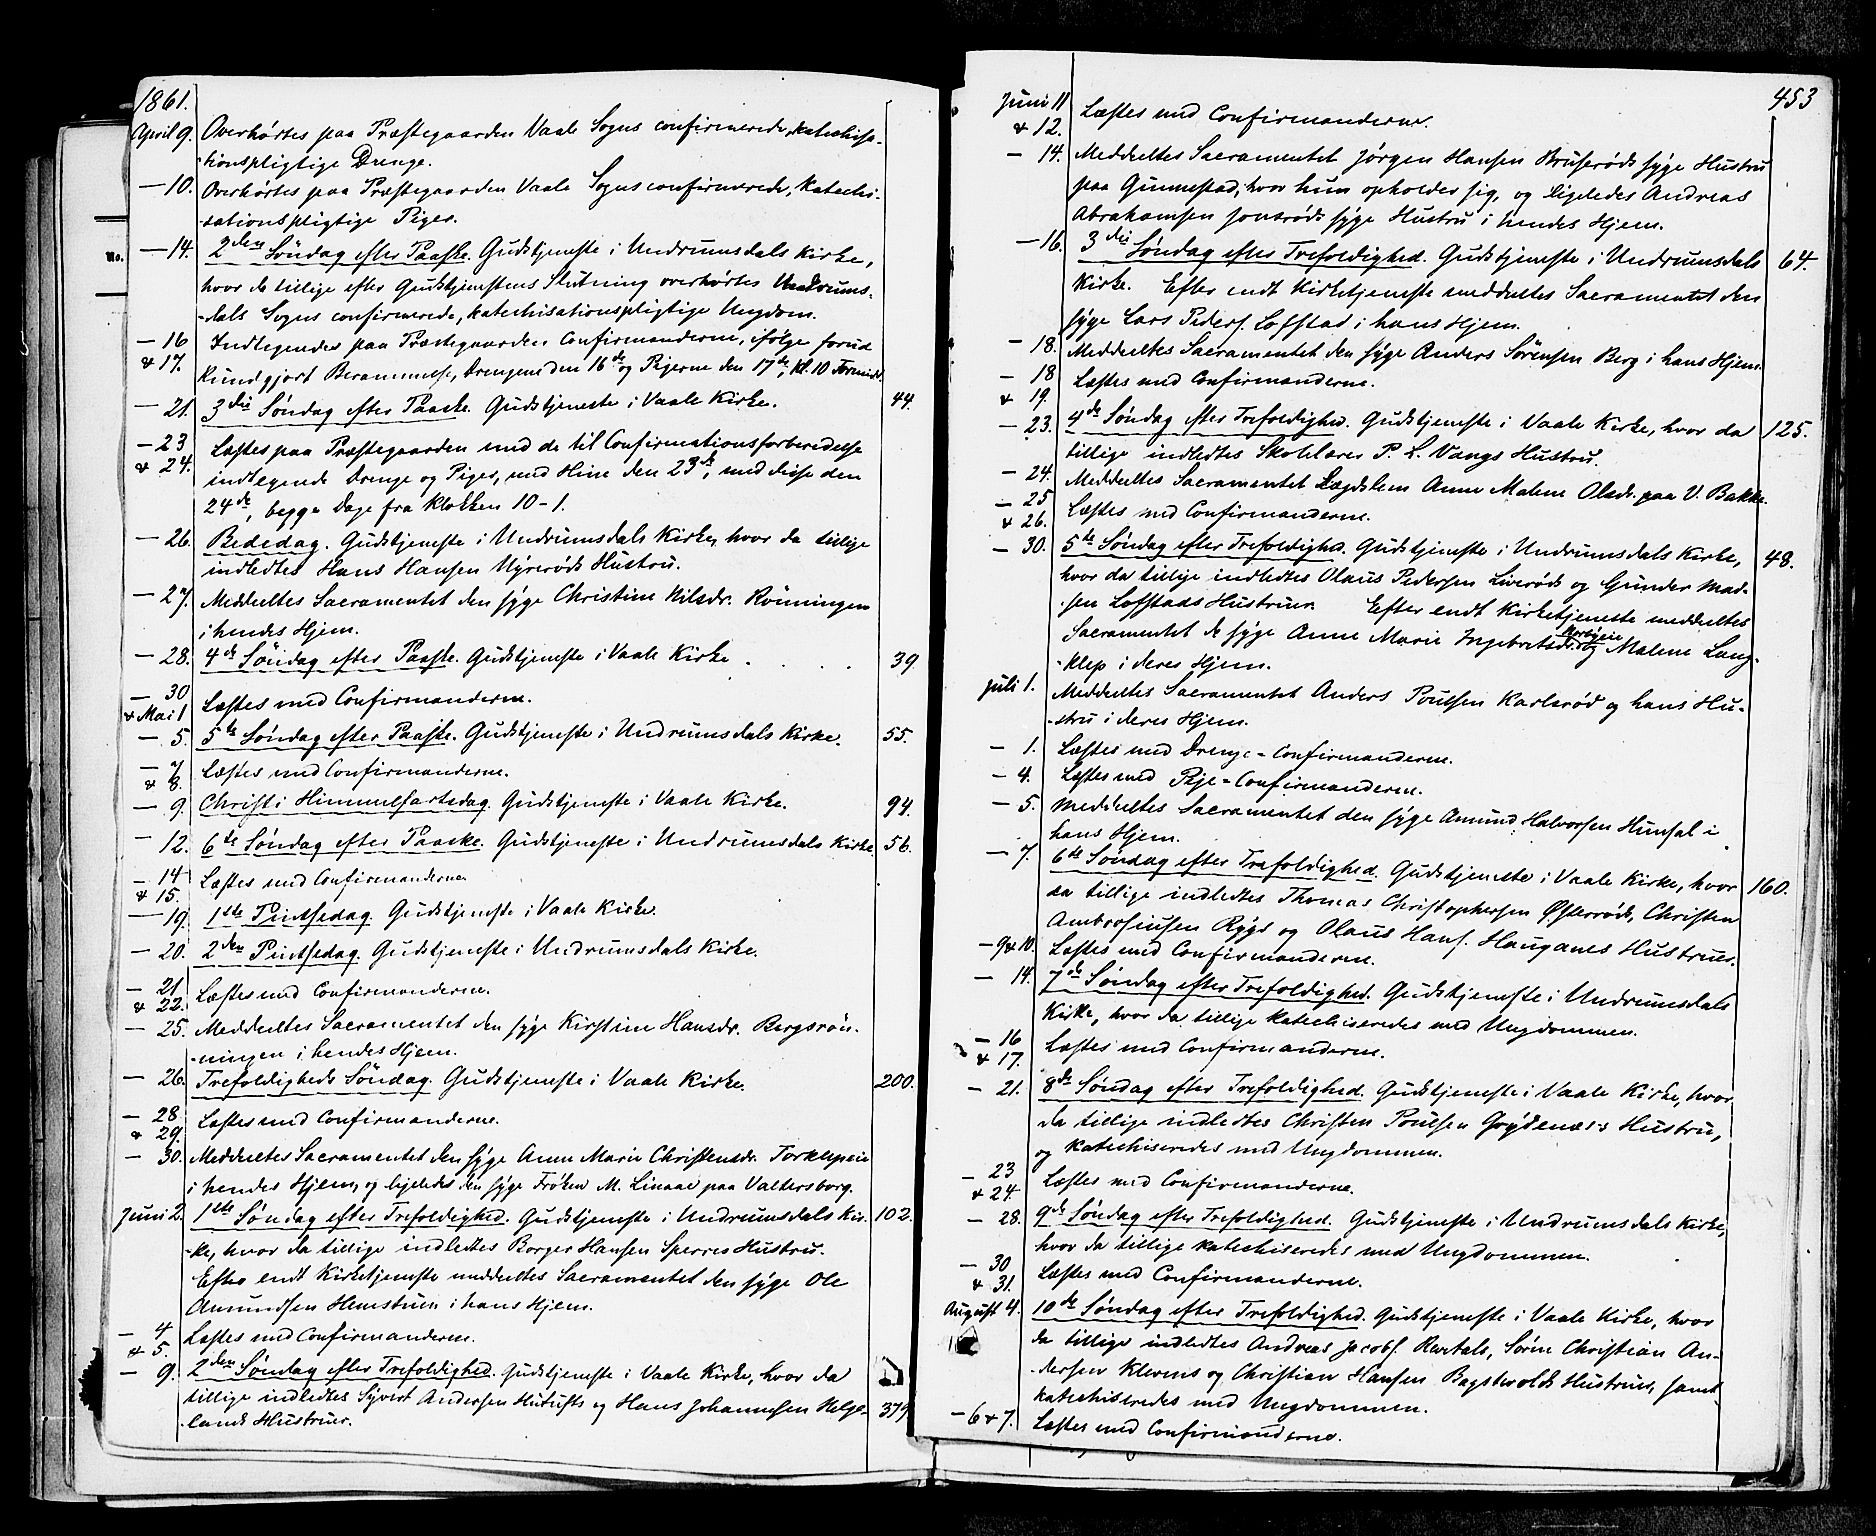 1861.
April 9. Overhørtes paa Præstegaarden Vaale Sogns confirmerede, katechisa-
-tionspligtige Drenge.
— 10. Overhørtes paa Præstegaarden Vaale Sogns confirmerede, katechi-
-sationspligtige Piger.
— 14. 2den Søndag efter Paaske. Gudstjeneste i Undrumsdals Kirke,
hvor da tillige efter Gudstjenestens Slutning overhørtes Undrums-
-dals Sogns confirmerede, katechisationspligtige Ungdom.
— 16 & 17. Indtegnedes paa Præstegaarden Confirmanderne, ifølge forud
kundgjort Berammelse, Drengene den 16de og Pigerne den 17de, Kl. 10 Formidd.
— 21. 3die Søndag efter Paaske. Gudstjeneste i Vaale Kirke. 44.
— 23 & 24. Læstes paa Præstegaarden med de til Confirmationsforberedelse
indtegnede Drenge og Piger, med Hine den 23de, med disse den
24de, begge Dage fra Klokken 10-1.
— 26. Bededag. Gudstjeneste i Undrumsdals Kirke, hvor da tillige
indledtes Hans Hansen Nyrerøds Hustru.
— 27. Meddeeltes Sacramentet den syge Christine Nilsdr. Rønningen
i hendes Hjem.
— 28. 4de Søndag efter Paaske. Gudstjeneste i Vaale Kirke . . . . 39.
— 30 & Mai 1 Læstes med Confirmanderne.
— 5. 5te Søndag efter Paaske. Gudstjeneste i Undrumsdals Kirke. 55.
— 7 & 8. Læstes med Confirmanderne.
— 9. Christi Himmelfartsdag. Gudstjeneste i Vaale Kirke. 94.
— 12. 6te Søndag efter Paaske. Gudstjeneste i Undrumsdals Kirke. 56.
— 14 & 15. Læstes med Confirmanderne
— 19. 1ste Pintsedag. Gudstjeneste i Vaale Kirke.
— 20. 2den Pintsedag. Gudstjeneste i Undrumsdals Kirke.
— 21 & 22. Læstes med Confirmanderne.
— 25. Meddeeltes Sacramentet den syge Kirstine Hansdr. Bergsrøn-
-ningen i hendes Hjem.
— 26. Trefoldigheds Søndag. Gudstjeneste i Vaale Kirke. 200.
— 28 & 29. Læstes med Confirmanderne.
— 30. Meddeeltes Sacramentet den syge Anne Marie Christensdr. Torklepeie
i hendes Hjem, og ligeledes den syge Frøken M. Linaae paa Valkersborg.
Juni 2. 1ste Søndag efter Trefoldighed. Gudstjeneste i Undrumsdals Kir- 102.
-ke, hvor da tillige indledtes Borger Hansen Sperres Hustru.
Efter endt Kirketjeneste meddeeltes Sacramentet den syge Ole
Amundsen Hemstuen i hans Hjem.
— 4 & 5. Læstes med Confirmanderne.
— 9. 2den Søndag efter Trefoldighed. Gudstjeneste i Vaale Kirke, hvor da
tillige indledtes Syvert Andersen og Hans Johannesen Helge- 379
-lands Hustruer.
453
Juni 11 & 12. Læstes med Confirmanderne.
— 14. Meddeeltes Sacramentet Jørgen Hansen Bruserøds syge Hustru
paa Gunnestad, hvor hun opholder sig, og ligeledes Andreas
Abrahamsen Jonsrøds syge Hustru i hendes Hjem.
— 16. 3die Søndag efter Trefoldighed. Gudstjeneste i Undrumsdals 64.
Kirke. Efter endt Kirketjeneste meddeeltes Sacramentet den
syge Lars Peders. Lofstad i hans Hjem.
— 18. Meddeeltes Sacramentet den syge Anders Sørensen Berg i hans Hjem.
— 18 & 19. Læstes med Confirmanderne.
— 23. 4de Søndag efter Trefoldighed. Gudstjeneste i Vaale Kirke, hvor da 125.
tillige indledtes Skolelærer P. L. Vangs Hustru.
— 24. Meddeeltes Sacramentet Lægdslem Anne Malene Olsdr. paa V. Bakke.
— 25 & 26. Læstes med Confirmanderne.
— 30. 5te Søndag efter Trefoldighed. Gudstjeneste i Undrumsdals Kirke, 48.
hvor da tillige indledtes Olaus Pedersen Liverøds og Gunder Mad-
-sen Lofstads Hustruer. Efter endt Kirketjeneste meddeeltes
Sacramentet de syge Anne Marie Ingebretsdr. og Malene Lang-
-klep i deres Hjem.
Juli 1. Meddeeltes Sacramentet Anders Poulsen Karlsrød og hans Hu-
-stru i deres Hjem.
— 1. Læstes med Drenge-Confirmanderne.
— 4. Læstes med Pige-Confirmanderne.
— 5. Meddeeltes Sacramentet den syge Amund Halvorsen Hunsal i
hans Hjem.
— 7. 6te Søndag efter Trefoldighed. Gudstjeneste i Vaale Kirke, hvor 160.
da tillige indledtes Thomas Christophersen Østerrøds, Christen
Ambrosiusen Rygs og Olaus Hans. Hauganes Hustruer.
— 9 & 10. Læstes med Confirmanderne.
— 14. 7de Søndag efter Trefoldighed. Gudstjeneste i Undrumsdals
Kirke, hvor da tillige katechiseredes med Ungdommen.
— 16 & 17. Læstes med Confirmanderne.
— 21. 8de Søndag efter Trefoldighed. Gudstjeneste i Vaale Kirke, hvor
da tillige indledtes Christen Poulsen Hustru,
og katechiseredes med Ungdommen.
— 23 & 24. Læstes med Confirmanderne.
— 28. 9de Søndag efter Trefoldighed. Gudstjeneste i Undrumsdals Kirke,
hvor da tillige katechiseredes med Ungdommen.
— 30 & 31. Læstes med Confirmanderne.
August 4. 10de Søndag efter Trefoldighed. Gudstjeneste i Vaale Kirke, hvor
da tillige indledtes Andreas Jacobs. Revetals, Søren Christian An-
-dersen Klevens og Christian Hansen Bagstevolds Hustruer, samt
katechiseredes med Ungdommen.
— 6 & 7. Læstes med Confirmanderne.